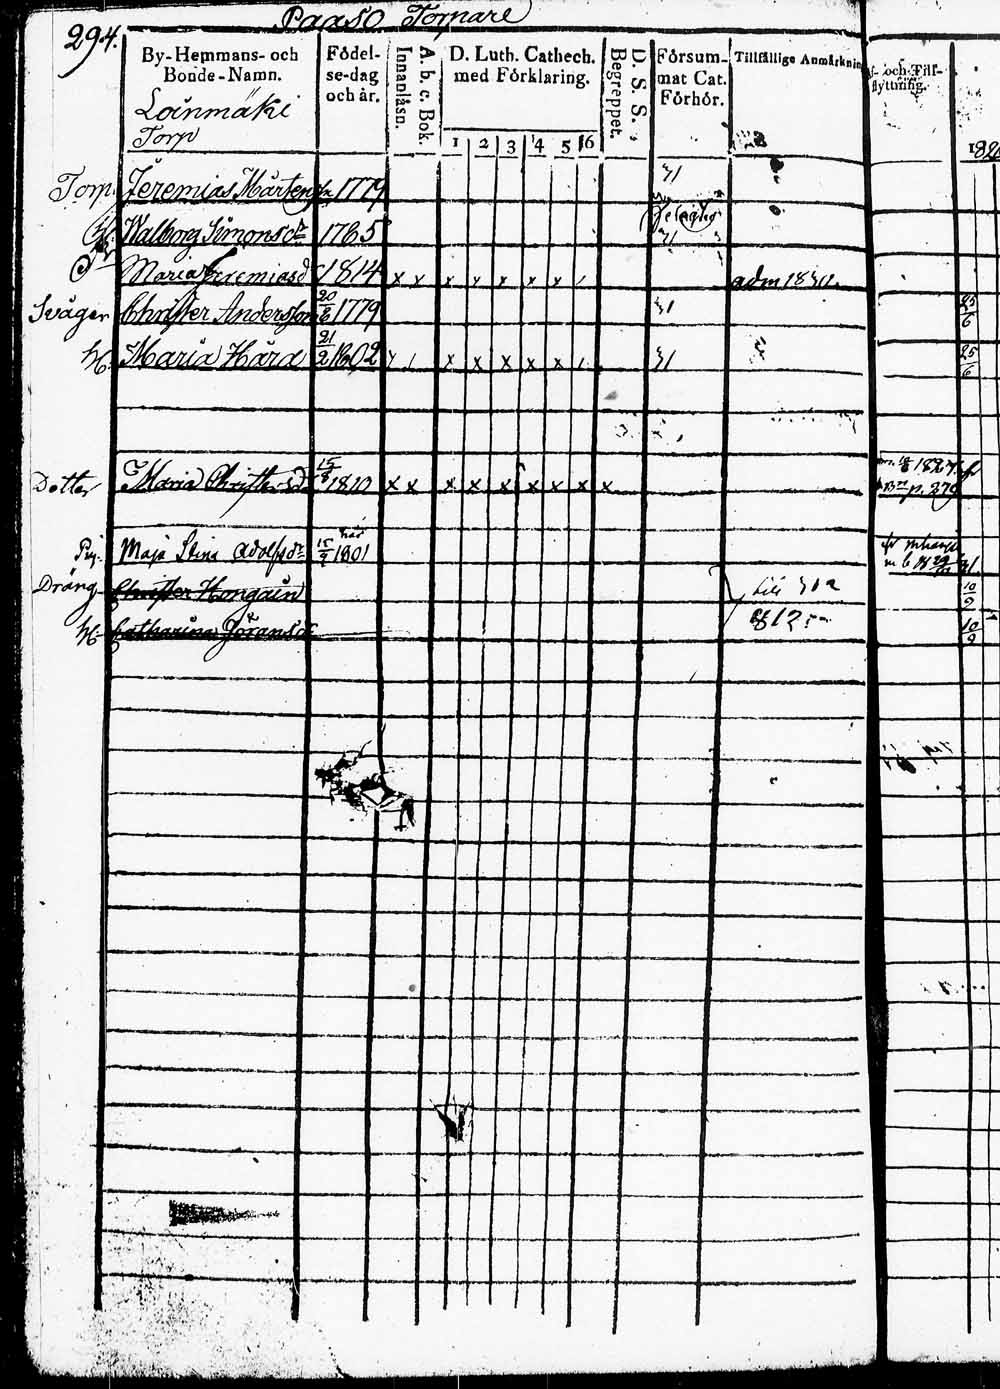 294. Paaso Tornare
By-Hemmans- och Bonde-Namn.
Födel-se-dag och år.
Innanläsn.
A. b. c. Bok.
D. Luth. Cathech. med Förklaring.
1 2 3 4 5 6
D. S. S., Begreppet.
Försum-mat Cat. Förhör.
Tillfällige Anmärknin
och Till-flyttning.
182
Loinmäki
Torp
Torp. Jeremias Mårtens 1779 31
H. Walborg Simonsdr 1765 31
Maria Jeremiasd 1814 x x x x x x x adm 1830.
Svåger Christer Andersson 20/6 1779 31 25/6
H. Maria Hård 21/2 1802 x x x x x 31 25/6
Dotter Maria Christersd 15/8 1810 x x x x x x x x x 1827 p. 279
Pig. Maja Stina Adolfsdr 15/9 1801
Dräng Christer Hongain till 312 10/9
H. Catharina Göransdr 10/9